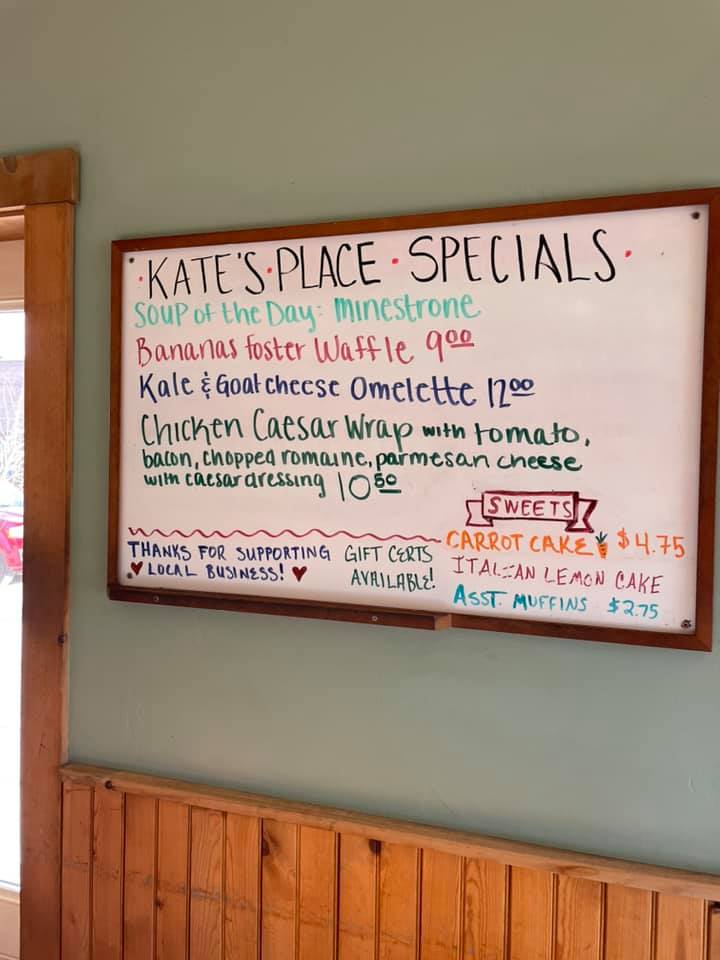 ·KATE'S·PLACE·SPECIALS·
Soup of the Day: Minestrone
Bananas foster Waffle 9.00
Kale & Goat cheese Omelette 12.00
Chicken Caesar Wrap with tomato,
bacon, chopped romaine, parmesan cheese
with caesar dressing 10.50
SWEETS
CARROT CAKE $4.75
ITALIAN LEMON CAKE
ASST. MUFFINS $2.75
THANKS FOR SUPPORTING
♥ LOCAL BUSINESS! ♥
GIFT CERTS
AVAILABLE!